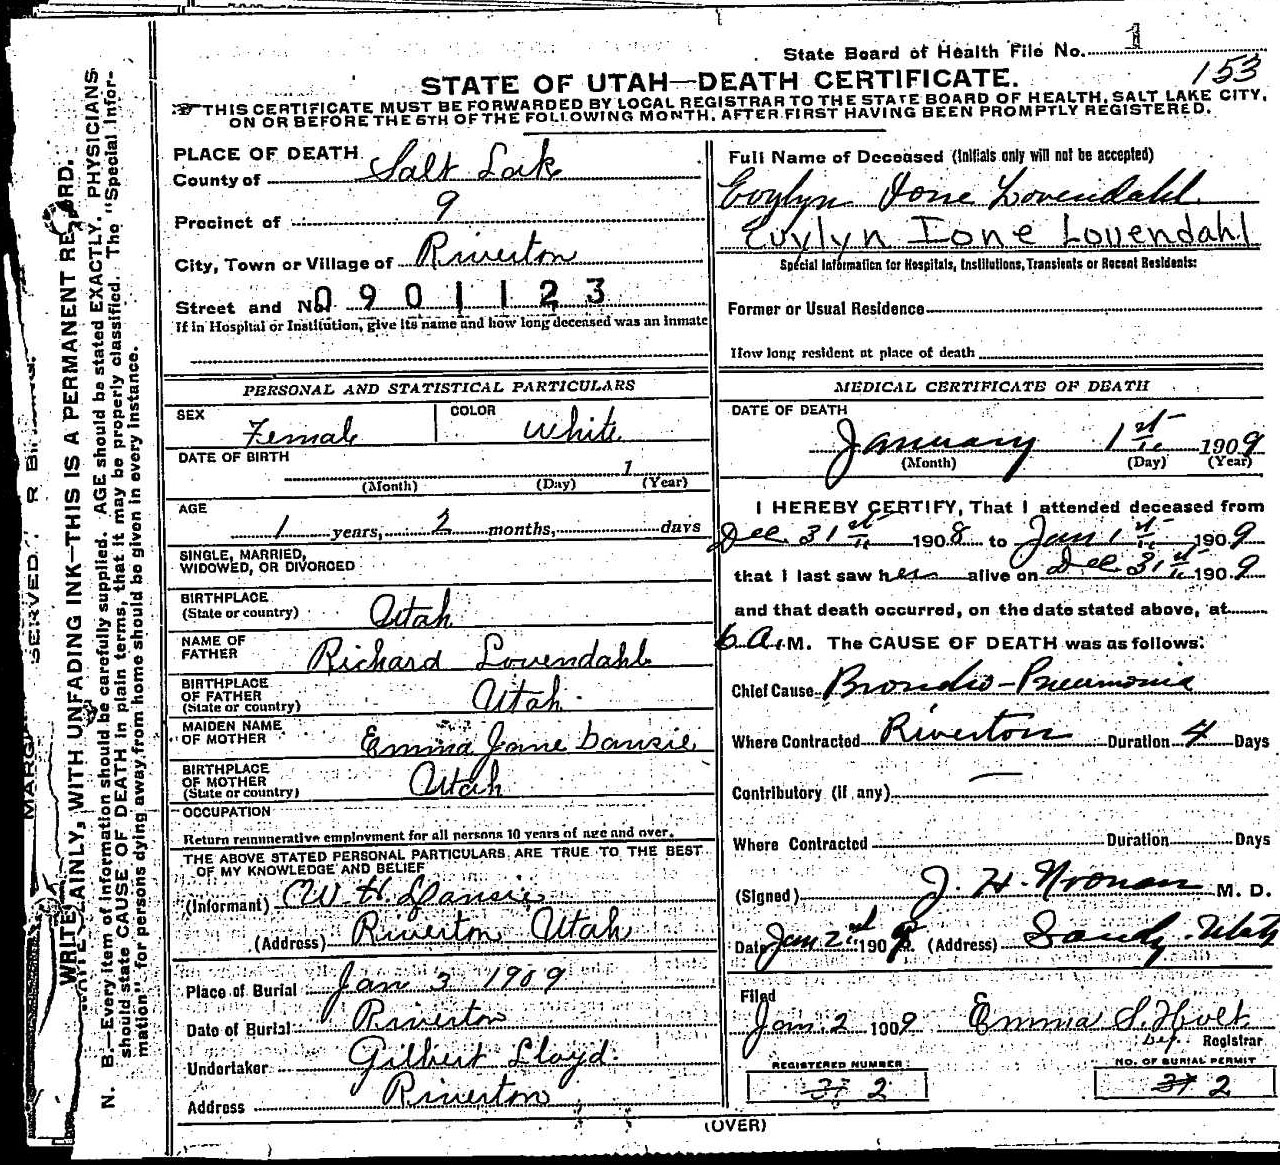 State Board of Health File No. 1
153
STATE OF UTAH—DEATH CERTIFICATE.
THIS CERTIFICATE MUST BE FORWARDED BY LOCAL REGISTRAR TO THE STATE BOARD OF HEALTH, SALT LAKE CITY,
ON OR BEFORE THE 5TH OF THE FOLLOWING MONTH, AFTER FIRST HAVING BEEN PROMPTLY REGISTERED.
PLACE OF DEATH
County of Salt Lake
Precinct of 9
City, Town or Village of Riverton
Street and No. 0901123
If in Hospital or Institution, give its name and how long deceased was an inmate
PERSONAL AND STATISTICAL PARTICULARS
SEX Female COLOR White
DATE OF BIRTH 1
(Month) (Day) (Year)
AGE
1 years, 2 months, days
SINGLE, MARRIED,
WIDOWED, OR DIVORCED
BIRTHPLACE
(State or country) Utah
NAME OF
FATHER Richard Lovendahl
BIRTHPLACE
OF FATHER
(State or country) Utah
MAIDEN NAME
OF MOTHER Emma Jane Dansie
BIRTHPLACE
OF MOTHER
(State or country) Utah
OCCUPATION
Return remunerative employment for all persons 10 years of age and over.
THE ABOVE STATED PERSONAL PARTICULARS ARE TRUE TO THE BEST
OF MY KNOWLEDGE AND BELIEF
(Informant) W. H. Dansie
(Address) Riverton Utah
Place of Burial Jan 3 1909
Date of Burial Riverton
Undertaker Gilbert Lloyd
Address Riverton
Full Name of Deceased (Initials only will not be accepted)
Evylyn Ione Lovendahl
Evylyn Ione Lovendahl
Special Information for Hospitals, Institutions, Transients or Recent Residents:
Former or Usual Residence
How long resident at place of death
MEDICAL CERTIFICATE OF DEATH
DATE OF DEATH
January 1st 1909
(Month) (Day) (Year)
I HEREBY CERTIFY, That I attended deceased from
Dec. 31st 1908 to Jan 1st 1909
that I last saw her alive on Dec 31st 1909
and that death occurred, on the date stated above, at
6 A. M. The CAUSE OF DEATH was as follows:
Chief Cause Broncho-Pneumonia
Where Contracted Riverton Duration 4 Days
Contributory (if any) —
Where Contracted Duration Days
(Signed) J. H. Noonan M. D.
Date Jan 2nd 1909 (Address) Sandy Utah
Filed
Jan. 2 1909 Emma S. Holt
Dep. Registrar
REGISTERED NUMBER
31 2
NO. OF BURIAL PERMIT
31 2
(OVER)
WRITE PLAINLY, WITH UNFADING INK—THIS IS A PERMANENT RECORD.
N. B.—Every item of information should be carefully supplied. AGE should be stated EXACTLY. PHYSICIANS
should state CAUSE OF DEATH in plain terms, that it may be properly classified. The "Special Infor-
mation" for persons dying away from home should be given in every instance.